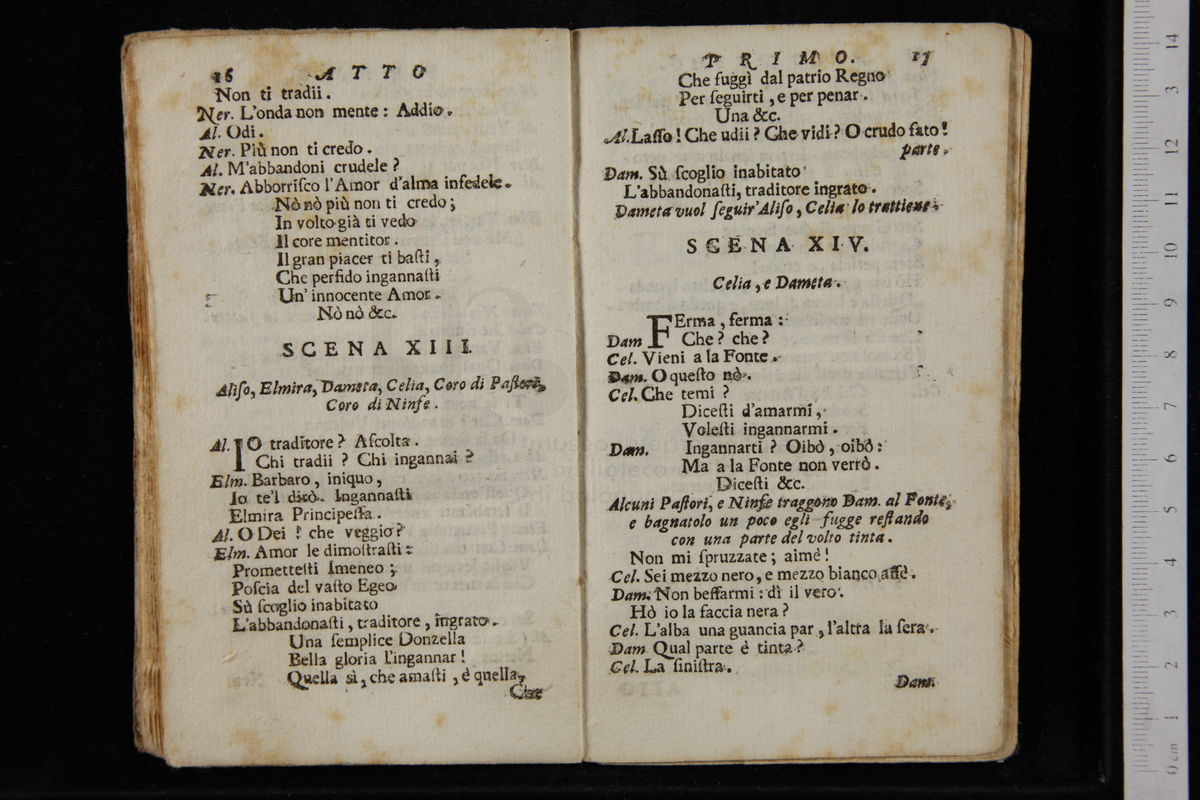 16 ATTO
Non ti tradii.
Ner. L'onda non mente: Addio.
Al. Odi.
Ner. Più non ti credo.
Al. M'abbandoni crudele?
Ner. Abborriſco l'Amor d'alma infedele.
Nò nò più non ti credo;
In volto già ti vedo
Il core mentitor.
Il gran piacer ti baſti,
Che perfido ingannaſti
Un' innocente Amor.
Nò nò &c.
SCENA XIII.
Aliſo, Elmira, Dameta, Celia, Coro di Paſtori,
Coro di Ninfe.
Al. IO traditore? Aſcolta.
Chi tradii? Chi ingannai?
Elm. Barbaro, iniquo,
Io te'l dirò. Ingannaſti
Elmira Principeſſa.
Al. O Dei! che veggio?
Elm. Amor le dimoſtraſti:
Prometteſti Imeneo;
Poſcia del vaſto Egeo
Sù ſcoglio inabitato
L'abbandonaſti, traditore, ingrato.
Una ſemplice Donzella
Bella gloria l'ingannar!
Quella sì, che amaſti, è quella,
Che
PRIMO. 17
Che fuggì dal patrio Regno
Per ſeguirti, e per penar.
Una &c.
Al. Laſſo! Che udii? Che vidi? O crudo fato!
parte.
Dam. Sù ſcoglio inabitato
L'abbandonaſti, traditore ingrato.
Dameta vuol ſeguir' Aliſo, Celia lo trattiene.
SCENA XIV.
Celia, e Dameta.
FErma, ferma:
Dam Che? che?
Cel. Vieni a la Fonte.
Dam. O queſto nò.
Cel. Che temi?
Diceſti d'amarmi,
Voleſti ingannarmi.
Dam. Ingannarti? Oibò, oibò:
Ma a la Fonte non verrò.
Diceſti &c.
Alcuni Paſtori, e Ninfe traggono Dam. al Fonte,
e bagnatolo un poco egli fugge reſtando
con una parte del volto tinta.
Non mi ſpruzzate; aimè!
Cel. Sei mezzo nero, e mezzo bianco affè.
Dam. Non beffarmi: dì il vero.
Hò io la faccia nera?
Cel. L'alba una guancia par, l'altra la ſera.
Dam Qual parte è tinta?
Cel. La ſiniſtra.
Dam.